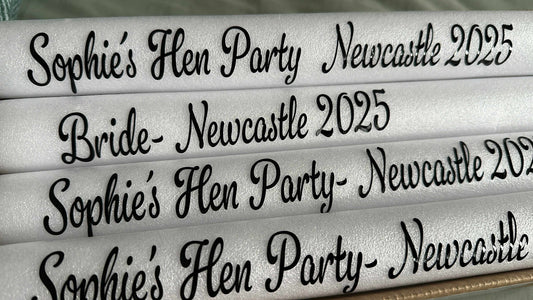 Sophie's Hen Party Newcastle 2025
Bride- Newcastle 2025
Sophie's Hen Party- Newcastle 202
Sophie's Hen Party- Newcastle